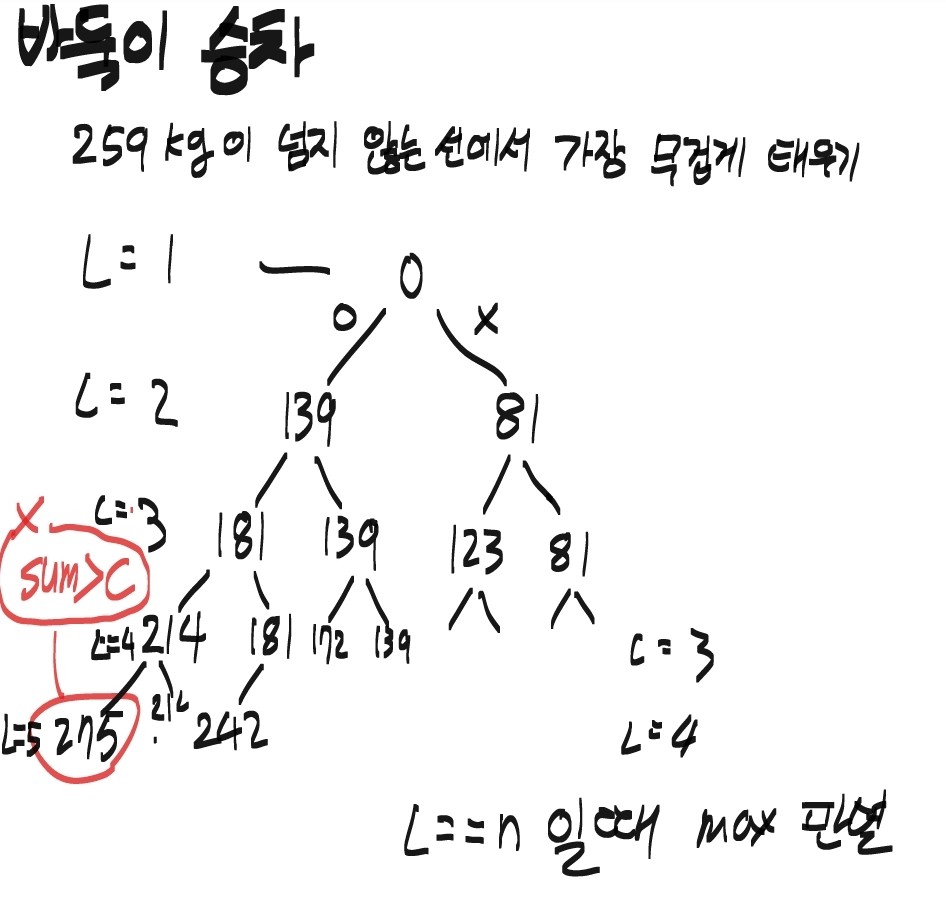 바둑이 승차
259 kg이 넘지 않는 선에서 가장 무겁게 태우기
L = 1 — 0
O X
L = 2 139 81
X L = 3 181 139 123 81
sum>C
L=4 214 181 172 139 L = 3
L=5 275 214 242 L = 4
L==n 일때 max 판별